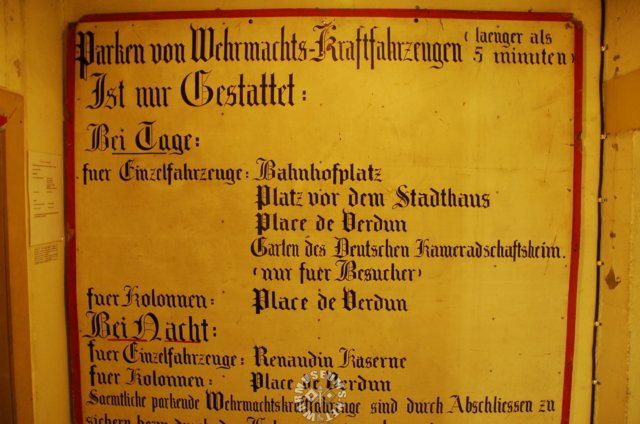 Parken von Wehrmachts-Kraftfahrzeugen (laenger als
5 minuten)
Ist nur Gestattet:
Bei Tage:
fuer Einzelfahrzeuge: Bahnhofplatz
Platz vor dem Stadthaus
Place de Verdun
Garten des Deutschen Kameradschaftsheim.
(nur fuer Besucher)
fuer Kolonnen: Place de Verdun
Bei Nacht:
fuer Einzelfahrzeuge: Renaudin Kaserne
fuer Kolonnen: Place de Verdun
Saemtliche parkende Wehrmachtskraftfahrzeuge sind durch Abschliessen zu
sichern